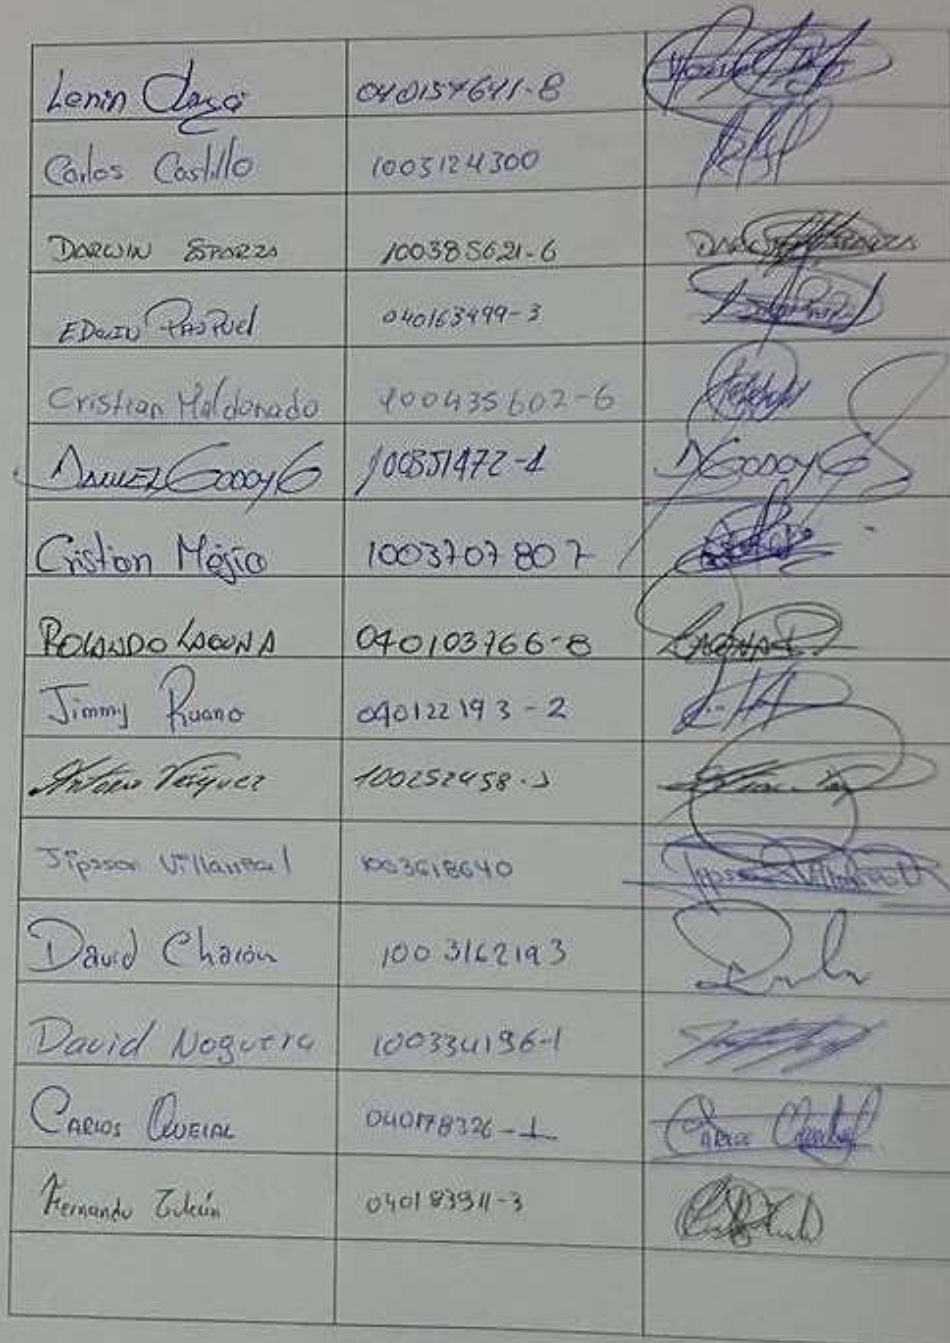 Lenin 040157641-8
Carlos Castillo 1003124300
DARWIN ESPARZA 100385621-6 DARWIN ESPARZA
EDWIN PASPUEL 040163499-3
Cristian Maldonado 100435602-6
DANIEL GODOY G 100851472-1 D GODOY G
Cristian Mejia 1003707807
ROLANDO LAGUNA 040103766-8 LAGUNA R
Jimmy Ruano 040122193-2
Arturo Vasquez 100252458-1
Jipsson Villarreal 1003618640 Jipsson Villarreal
David Chacón 1003162193
David Noguera 100334196-1
CARLOS QUELAL 040178326-1 CARLOS Quelal
Fernando 040183911-3